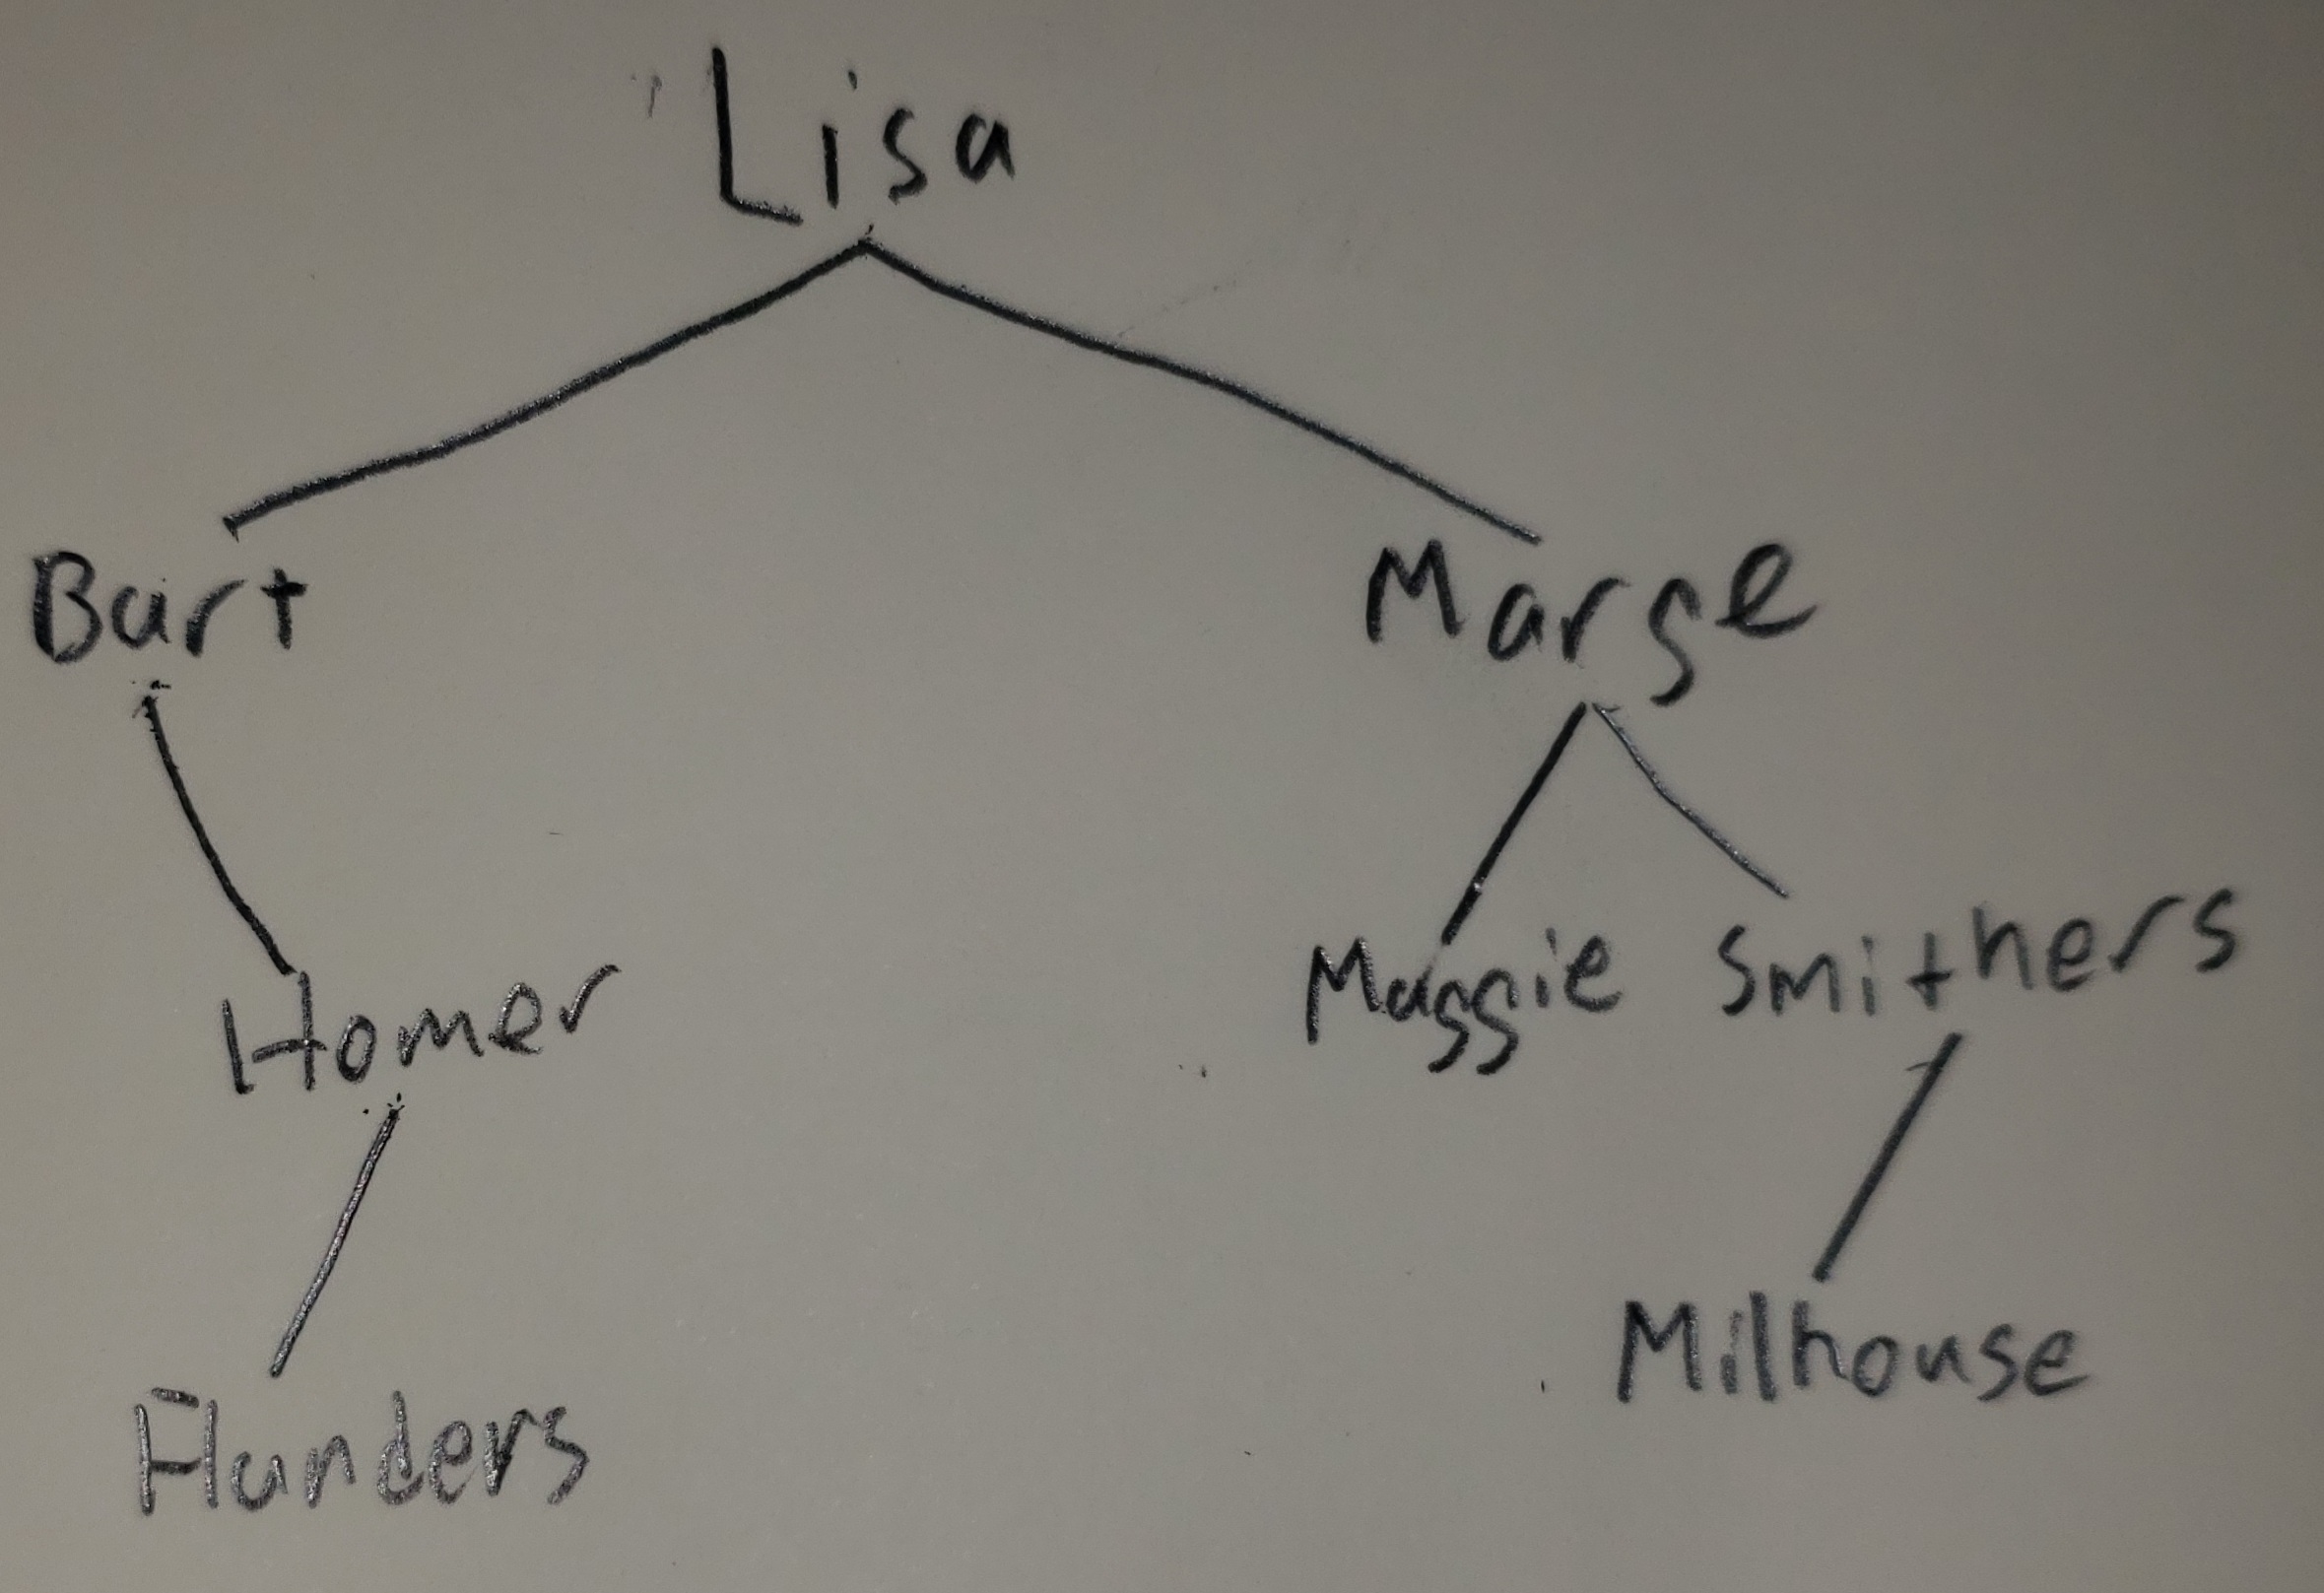 Lisa
Bart
Marge
Homer
Maggie Smithers
Flanders
Milhouse